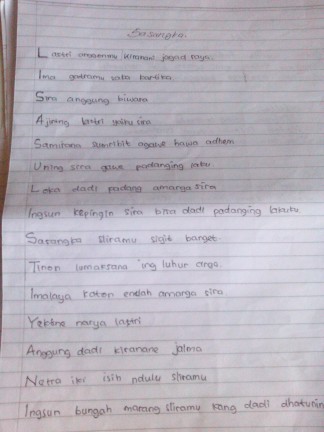 Sasangka.
Lastri angantimu kiranani jagad raya.
Ima gatramu sato kartika
Sira anggung biwara
Ajining lastri yaiku sira
Samirana sumribit agawe hawa adhem
Uning sira gawe padanging
Loka dadi padang amarga sira
Ingsun kepingin sira bisa dadi padanging lakuku
Sasangka sliramu sigit banget
Tinon lumaksana ing luhur arga.
Imalaya katon endah amarga sira
Yektine narya lastri
Anggung dadi kiranane jalma
Netra iki isih ndulu sliramu
Ingsun bungah marang sliramu kang dadi